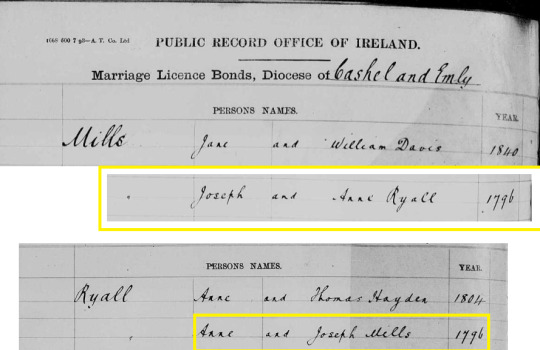 1668 600 7 98—A. T. Co. Ltd
PUBLIC RECORD OFFICE OF IRELAND.
Marriage Licence Bonds, Diocese of Cashel and Emly
PERSONS NAMES. YEAR.
Mills Jane and William Davis 1840
" Joseph and Anne Ryall 1796
PERSONS NAMES. YEAR.
Ryall Anne and Thomas Hayden 1804
" Anne and Joseph Mills 1796